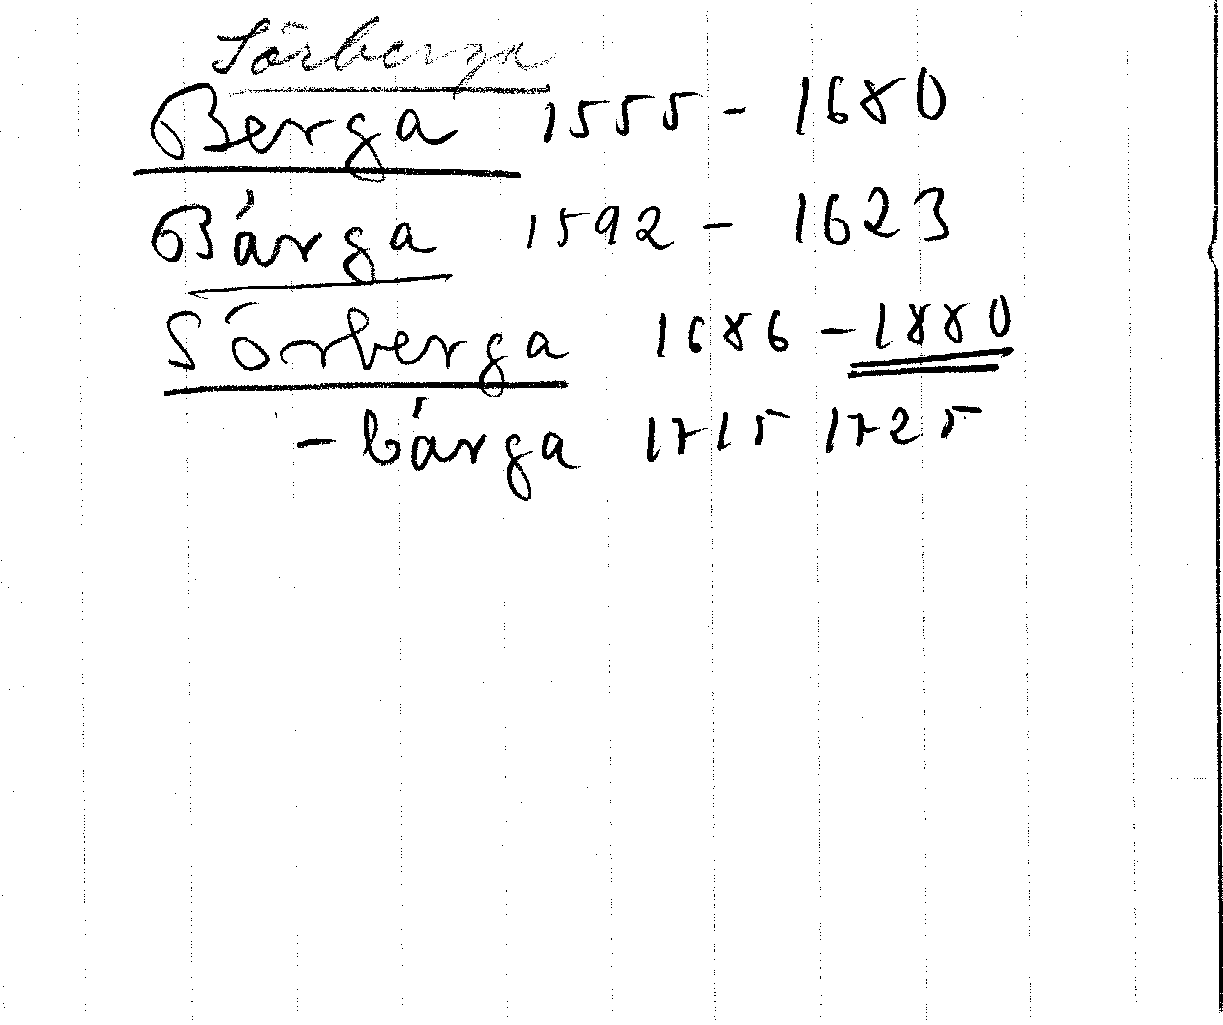 Sörberga
Berga 1555 - 1680
Bárga 1592 - 1623
Sörberga 1686 - 1880
- bárga 1715 1725